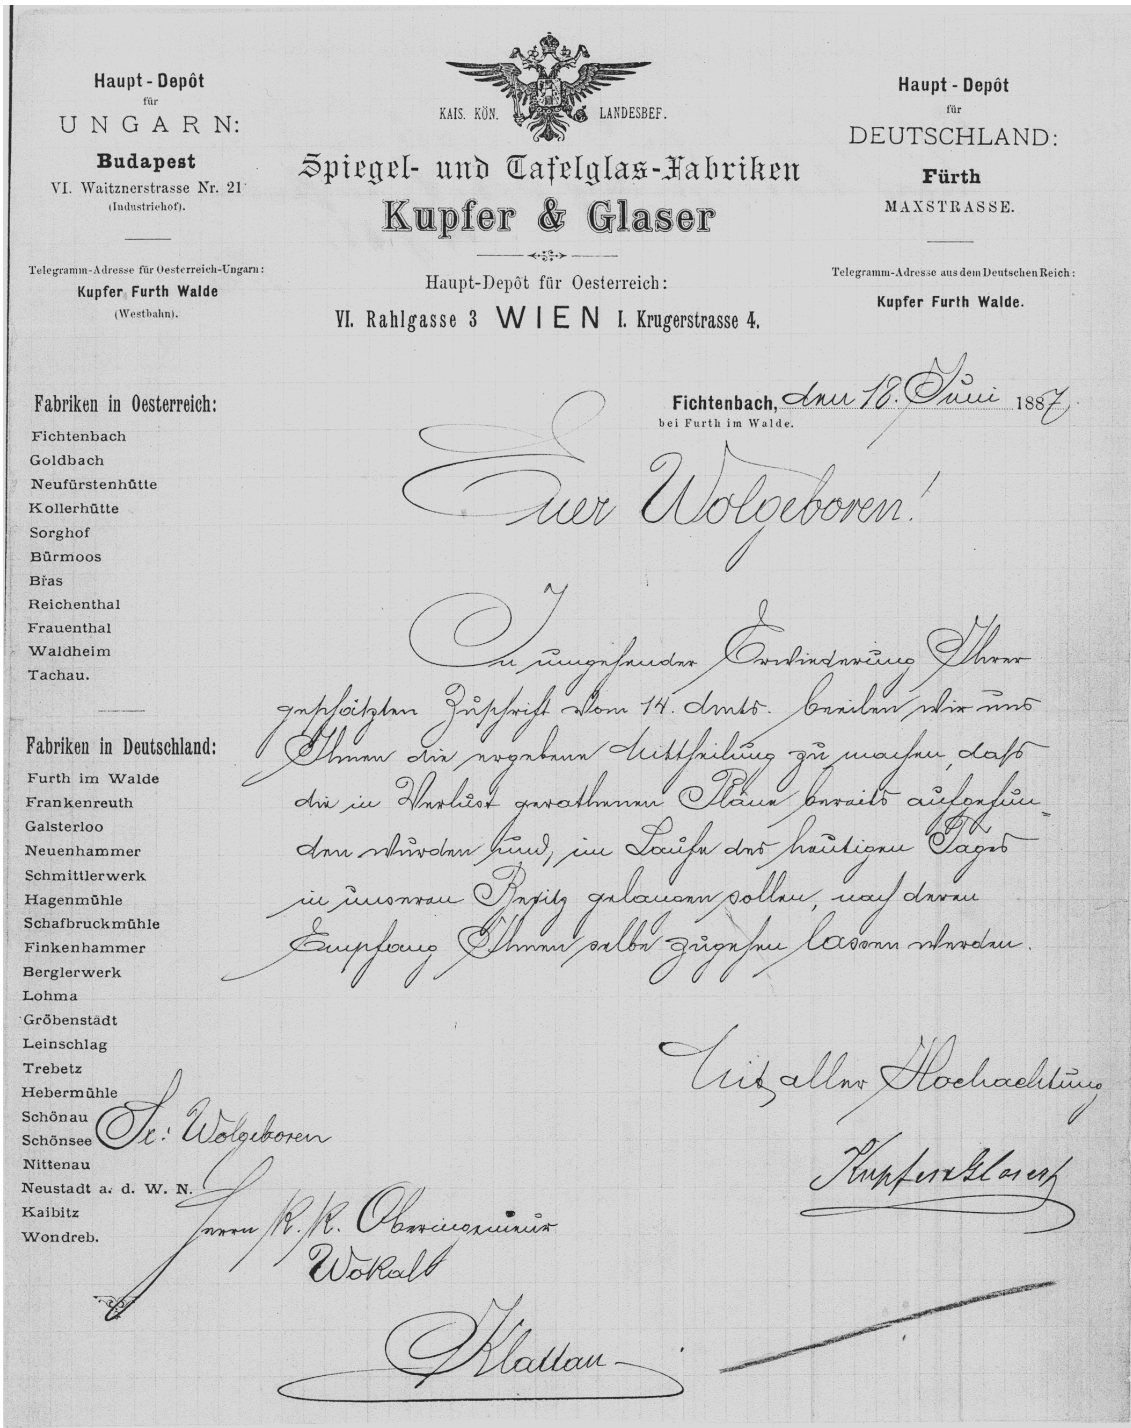 Haupt-Depôt
für
UNGARN:
Budapest
VI. Waitznerstrasse Nr. 21
(Industriehof).
Telegramm-Adresse für Oesterreich-Ungarn:
Kupfer Furth Walde
(Westbahn).
KAIS. KÖN. LANDESBEF.
Spiegel- und Tafelglas-Fabriken
Kupfer & Glaser
Haupt-Depôt für Oesterreich:
VI. Rahlgasse 3 WIEN I. Krugerstrasse 4.
Haupt-Depôt
für
DEUTSCHLAND:
Fürth
MAXSTRASSE.
Telegramm-Adresse aus dem Deutschen Reich:
Kupfer Furth Walde.
Fabriken in Oesterreich:
Fichtenbach
Goldbach
Neufürstenhütte
Kollerhütte
Sorghof
Bürmoos
Břas
Reichenthal
Frauenthal
Waldheim
Tachau.
Fabriken in Deutschland:
Furth im Walde
Frankenreuth
Galsterloo
Neuenhammer
Schmittlerwerk
Hagenmühle
Schafbruckmühle
Finkenhammer
Berglerwerk
Lohma
Gröbenstädt
Leinschlag
Trebetz
Hebermühle
Schönau
Schönsee
Nittenau
Neustadt a. d. W. N.
Kaibitz
Wondreb.
Fichtenbach, den 18. Juni 1887
bei Furth im Walde.
Euer Wolgeboren!
In umgehender Erwiederung Ihrer
geschätzten Zuschrift vom 14. dmts. beeilen wir uns
Ihnen die ergebene Mittheilung zu machen, dass
die in Verlust gerathenen Pläne bereits aufgefun-
den wurden und, im Laufe des heutigen Tages
in unseren Besitz gelangen sollen, nach deren
Empfang Ihnen selbe zugehen lassen werden.
Mit aller Hochachtung
Kupfer & Glaser
Sr: Wolgeboren
Herrn K. K. Oberingenieur
Wokall
Klattau